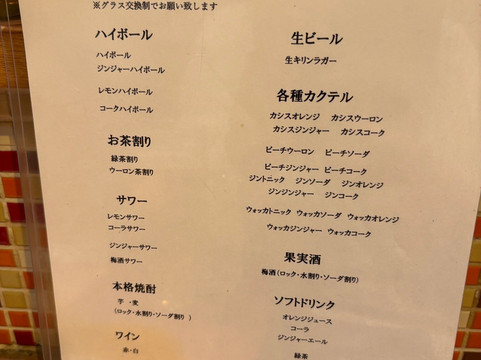 ※グラス交換制でお願い致します
ハイボール
ハイボール
ジンジャーハイボール
レモンハイボール
コークハイボール
お茶割り
緑茶割り
ウーロン茶割り
サワー
レモンサワー
コーラサワー
ジンジャーサワー
梅酒サワー
本格焼酎
芋 ・麦
(ロック・水割り・ソーダ割り )
ワイン
赤・白
生ビール
生キリンラガー
各種カクテル
カシスオレンジ カシスウーロン
カシスジンジャー カシスコーク
ピーチウーロン ピーチソーダ
ピーチジンジャー ピーチコーク
ジントニック ジンソーダ ジンオレンジ
ジンジンジャー ジンコーク
ウォッカトニック ウォッカソーダ ウォッカオレンジ
ウォッカジンジャー ウォッカコーク
果実酒
梅酒(ロック・水割り・ソーダ割り)
ソフトドリンク
オレンジジュース
コーラ
ジンジャーエール
緑茶